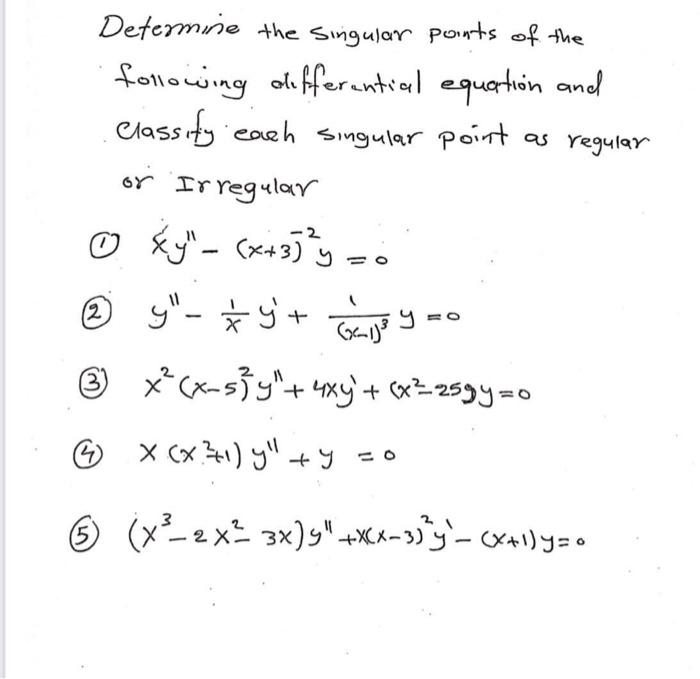 Determine the singular points of the
following differential equation and
classify each singular point as regular
or Irregular
① xy" - (x+3)⁻² y = 0
② y" - 1/x y' + 1/(x-1)³ y = 0
③ x² (x-5)² y" + 4xy' + (x²-25)y = 0
④ x (x²+1) y" + y = 0
⑤ (x³ - 2x² - 3x) y" + x(x-3)² y' - (x+1) y = 0